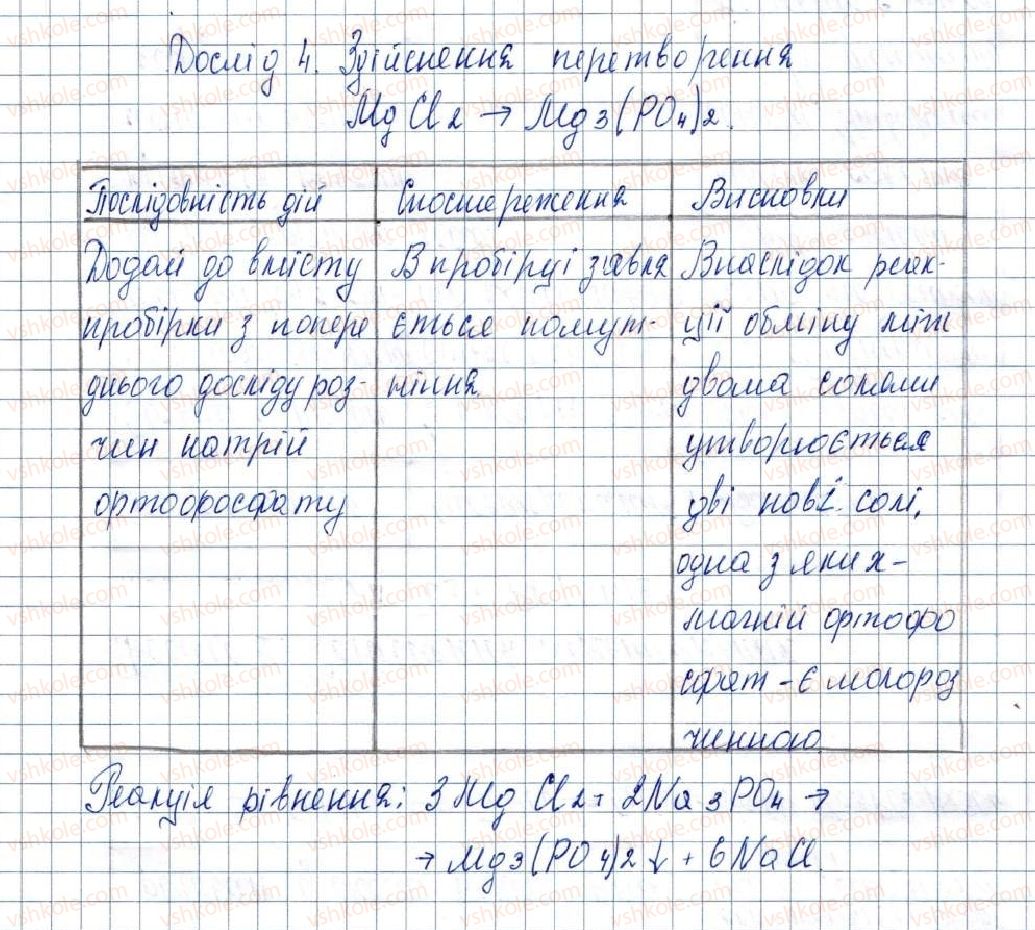 Дослід 4. Здійснення перетворення
MgCl2 → Mg3(PO4)2.
Послідовність дій
Спостереження
Висновки
Додамі до вмісту
пробірки з попере
днього досліду роз-
чин натрій
ортофосфату
В пробірці з'явля
ється помут-
ніння.
Внаслідок реак-
ції обміну між
двома солями
утворюється
дві нові солі,
одна з яких-
магній ортофо
сфат - є малороз
чинною.
Реакція рівнення: 3MgCl2 + 2Na3PO4 →
→ Mg3(PO4)2 ↓ + 6NaCl.
vshkole.com